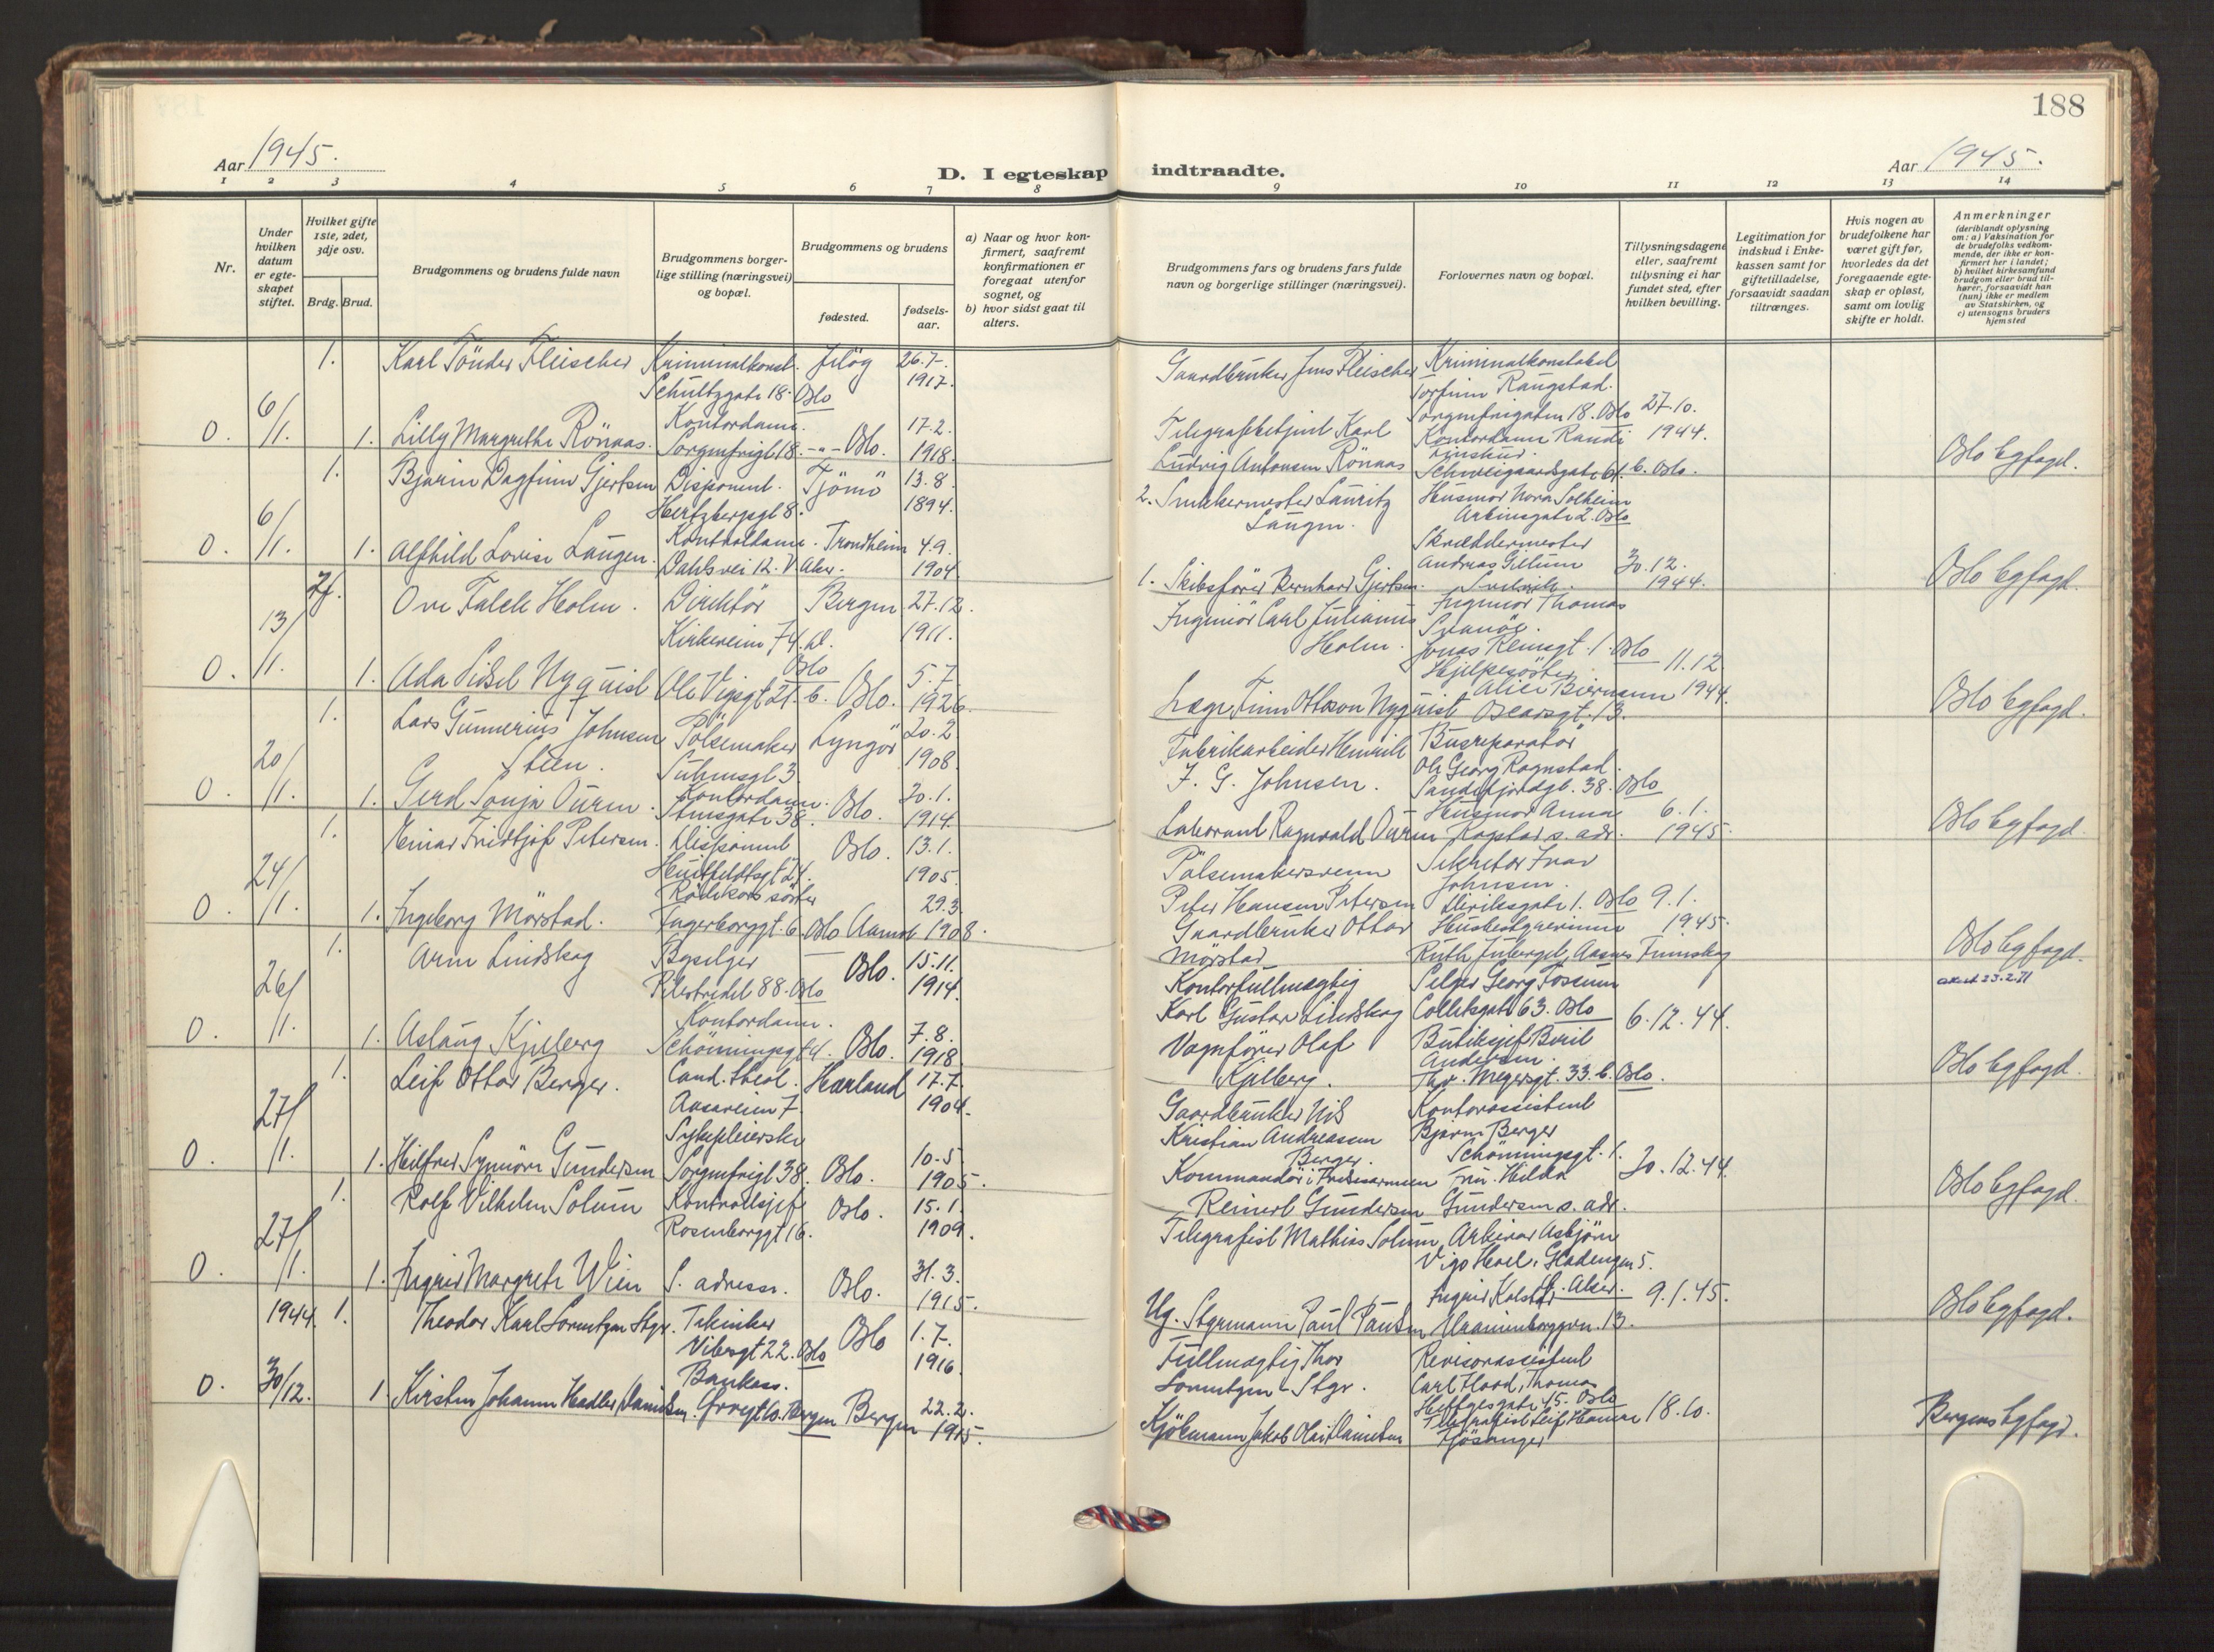 188
Aar 1945.
D. I egteskap indtraadte.
Aar 1945.
1 2 3 4 5 6 7 8 9 10 11 12 13 14
Nr.
Under hvilken datum er egteskapet stiftet.
Hvilket gifte 1ste, 2det, 3dje osv.
Brdg. Brud.
Brudgommens og brudens fulde navn
Brudgommens borgerlige stilling (næringsvei) og bopæl.
Brudgommens og brudens
fødested.
fødselsaar.
a) Naar og hvor konfirmert, saafremt konfirmationen er foregaat utenfor sognet, og
b) hvor sidst gaat til alters.
Brudgommens fars og brudens fars fulde navn og borgerlige stillinger (næringsvei).
Forlovernes navn og bopæl.
Tillysningsdagene eller, saafremt tillysning ei har fundet sted, efter hvilken bevilling.
Legitimation for indskud i Enkekassen samt for giftetilladelse, forsaavidt saadan tiltrænges.
Hvis nogen av brudefolkene har været gift før, hvorledes da det foregaaende egteskap er opløst, samt om lovlig skifte er holdt.
Anmerkninger
(deriblandt oplysning om: a) Vaksination for de brudefolks vedkommende, der ikke er konfirmert her i landet;
b) hvilket kirkesamfund brudgom eller brud tilhører, forsaavidt han (hun) ikke er medlem av Statskirken, og
c) utensogns bruders hjemsted
1. Karl Tönder Fleischer Kriminalkonst. Jelöy 26.7. 1917.
Schultzgate 18. Oslo
Gaardbruker Jens Fleischer Kriminalkonstabel
Torfinn Raugstad.
Sorgenfrigaten 18. Oslo 27.10. 1944.
0. 6/1. 1. Lilly Margrethe Rönaas. Kontordame.
Sorgenfrigt 18. -"- Oslo. 17.2. 1918.
Telegrafbetjent Karl
Ludvig Antonsen Rönaas
Kontordame Randi
Schweigaardsgate 61.b. Oslo.
Oslo byfogd.
1. Bjarne Dagfinn Gjertsen Disponent. Tjömö 13.8. 1894.
Hertzbergsgt 8.
2. Snekkermester Lauritz
Langen.
Husmor Nora Solheim
Arbinsgate 2. Oslo
0. 6/1. 1. Alfhild Lovise Langen. Kontordame. Trondheim 4.9. 1904
Dahls vei 12. V. Aker.
1. Skibsförer Bernhard Gjertsen.
Skræddermester
Andreas Gillum
30.12. 1944.
Oslo byfogd.
2. Ove Falck Holm. Direktör Bergen 27.12. 1911.
Kirkeveien 74. bl. Oslo
Ingeniör Carl Julianus
Holm.
Ingeniör Thomas
Svanöe.
Jonas Reinsgt. 1. Oslo
0. 13/1. 1. Ada Sidsel Nyquist Ole Vigsgt 21.b. Oslo. 5.7. 1926.
Læge Finn Ottoson Nyquist
Hjelpesöster
Alice Biermann
Oscarsgt. 13.
11.12 1944.
Oslo byfogd.
1. Lars Gunnerius Johnsen
Steen.
Pölsemaker Lyngör 20.2 1908.
Suhmsgt 3
Fabrikarbeider Henrik
F. G. Johnsen.
Busreparatör
Ole Georg Rognstad.
Sandefjordgt. 38. Oslo
0. 20/1. 1. Gerd Sonja Ouren. Kontordame. Oslo. 30.1. 1914.
Stensgate 38.
Laborant Ragnvald Ouren
Husmor Anna
Rogstad s. adr.
6.1. 1945.
Oslo byfogd.
1. Einar Fridtjof Petersen. Disponent Oslo. 13.1. 1905.
Huitfeldtsgt 24.
Pölsemakersvenn
Peter Hansen Petersen
Sekretær Ivar
Johnsen.
Eiriksgate 1. Oslo 9.1. 1945.
0. 24/1. 1. Ingeborg Mörstad. Rödekors söster
Fagerborggt. 6. Oslo Aamot 29.3. 1908.
Gaardbruker Ottar
Mörstad
Husbestyrerinne
Ruth Juberget, Aasnes Finnskog
Oslo byfogd.
1. Arne Lindskog Byselger Oslo. 15.11. 1914.
Pilestredet 88. Oslo
Kontorfullmægtig
Karl Gustav Lindskog
Selger Georg Fossum
Colletsgate 63. Oslo
6.12.44.
0. 26/1. 1. Aslaug Kjelberg Kontordame. Oslo. 7.8. 1918
Schönningsgt 4.
Vognförer Olaf
Kjelberg.
Butiksjef Beril
Andersen.
Thv. Meyersgt. 33.b. Oslo.
Oslo byfogd.
1. Leif Ottar Berger. Cand. theol. Hærland 17.7. 1904.
Aasaveien 7.
Gaardbruker Nils
Kristian Andreassen
Berger.
Kontorassistent
Bjarne Berger
Schönningsgt. 1.
30.12.44.
0. 27/1. 1. Hilfred Synnöve Gundersen Sykepleierske
Sorgenfrigt 38. Oslo. 10.5. 1905.
Kommandör i Frelsesarmeen
Reinert Gundersen
Fru. Hilda
Gundersen s. adr.
Oslo byfogd.
1. Rolf Vilhelm Solum Kontrollsjef Oslo. 15.1. 1909.
Rosenborggt 16.
Telegrafist Mathias Solum
Arkivar Asbjörn
Vigo Hoel, Gladengen 5.
0. 27/1. 1. Ingrid Margrethe Wien S. adresse. Oslo. 31.3. 1915.
Ug. Styrmann Paul Paulsen
Ingrid Kolstad
Uranienborggen. 13.
9.1.45.
Oslo byfogd.
1944. 1. Theodor Karl Lorentzen Styr. Tekniker Oslo 1.7. 1916
Vibesgt 22. Oslo
Fullmægtig Thor
Lorentzen-Styr.
Revisorassistent
Carl Flood, Thomas
Heftyesgate 45. Oslo
0. 30/12. 1. Kirsten Johanne Hadler Danielsen. Bankass.
Bergen Bergen 22.2. 1915.
Kjöbmann Jakob Olai Danielsen
Telegrafist Leif Hamre
Fjösanger
18.10.
Bergens byfogd.